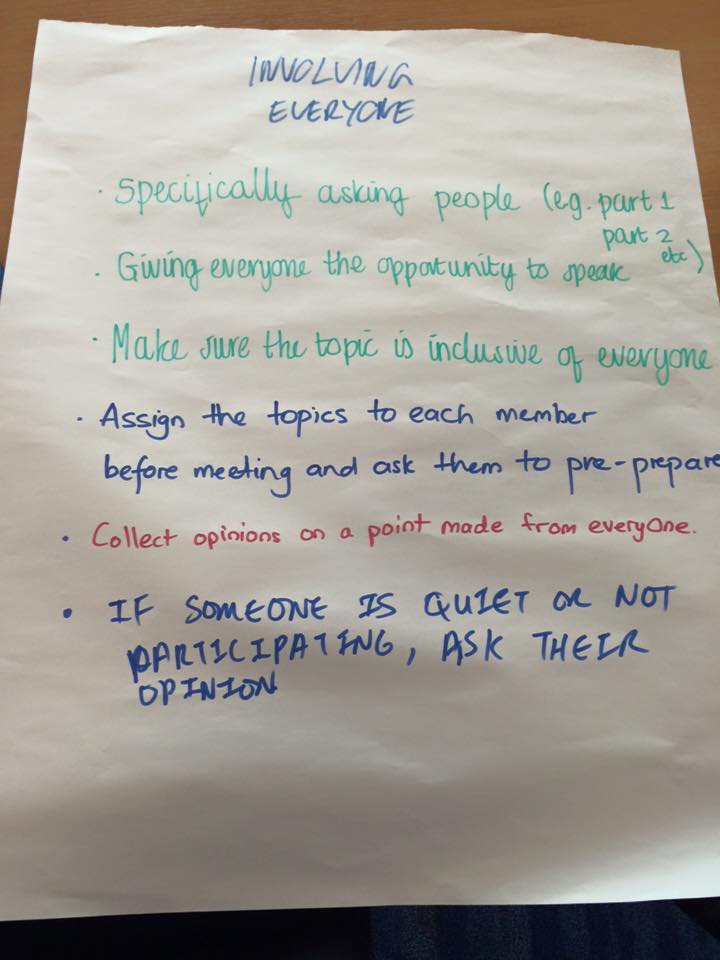 INVOLVING
EVERYONE
· Specifically asking people (eg. part 1
part 2
etc)
· Giving everyone the opportunity to speak
· Make sure the topic is inclusive of everyone
· Assign the topics to each member
before meeting and ask them to pre-prepare
· Collect opinions on a point made from everyone.
· IF SOMEONE IS QUIET OR NOT
PARTICIPATING, ASK THEIR
OPINION